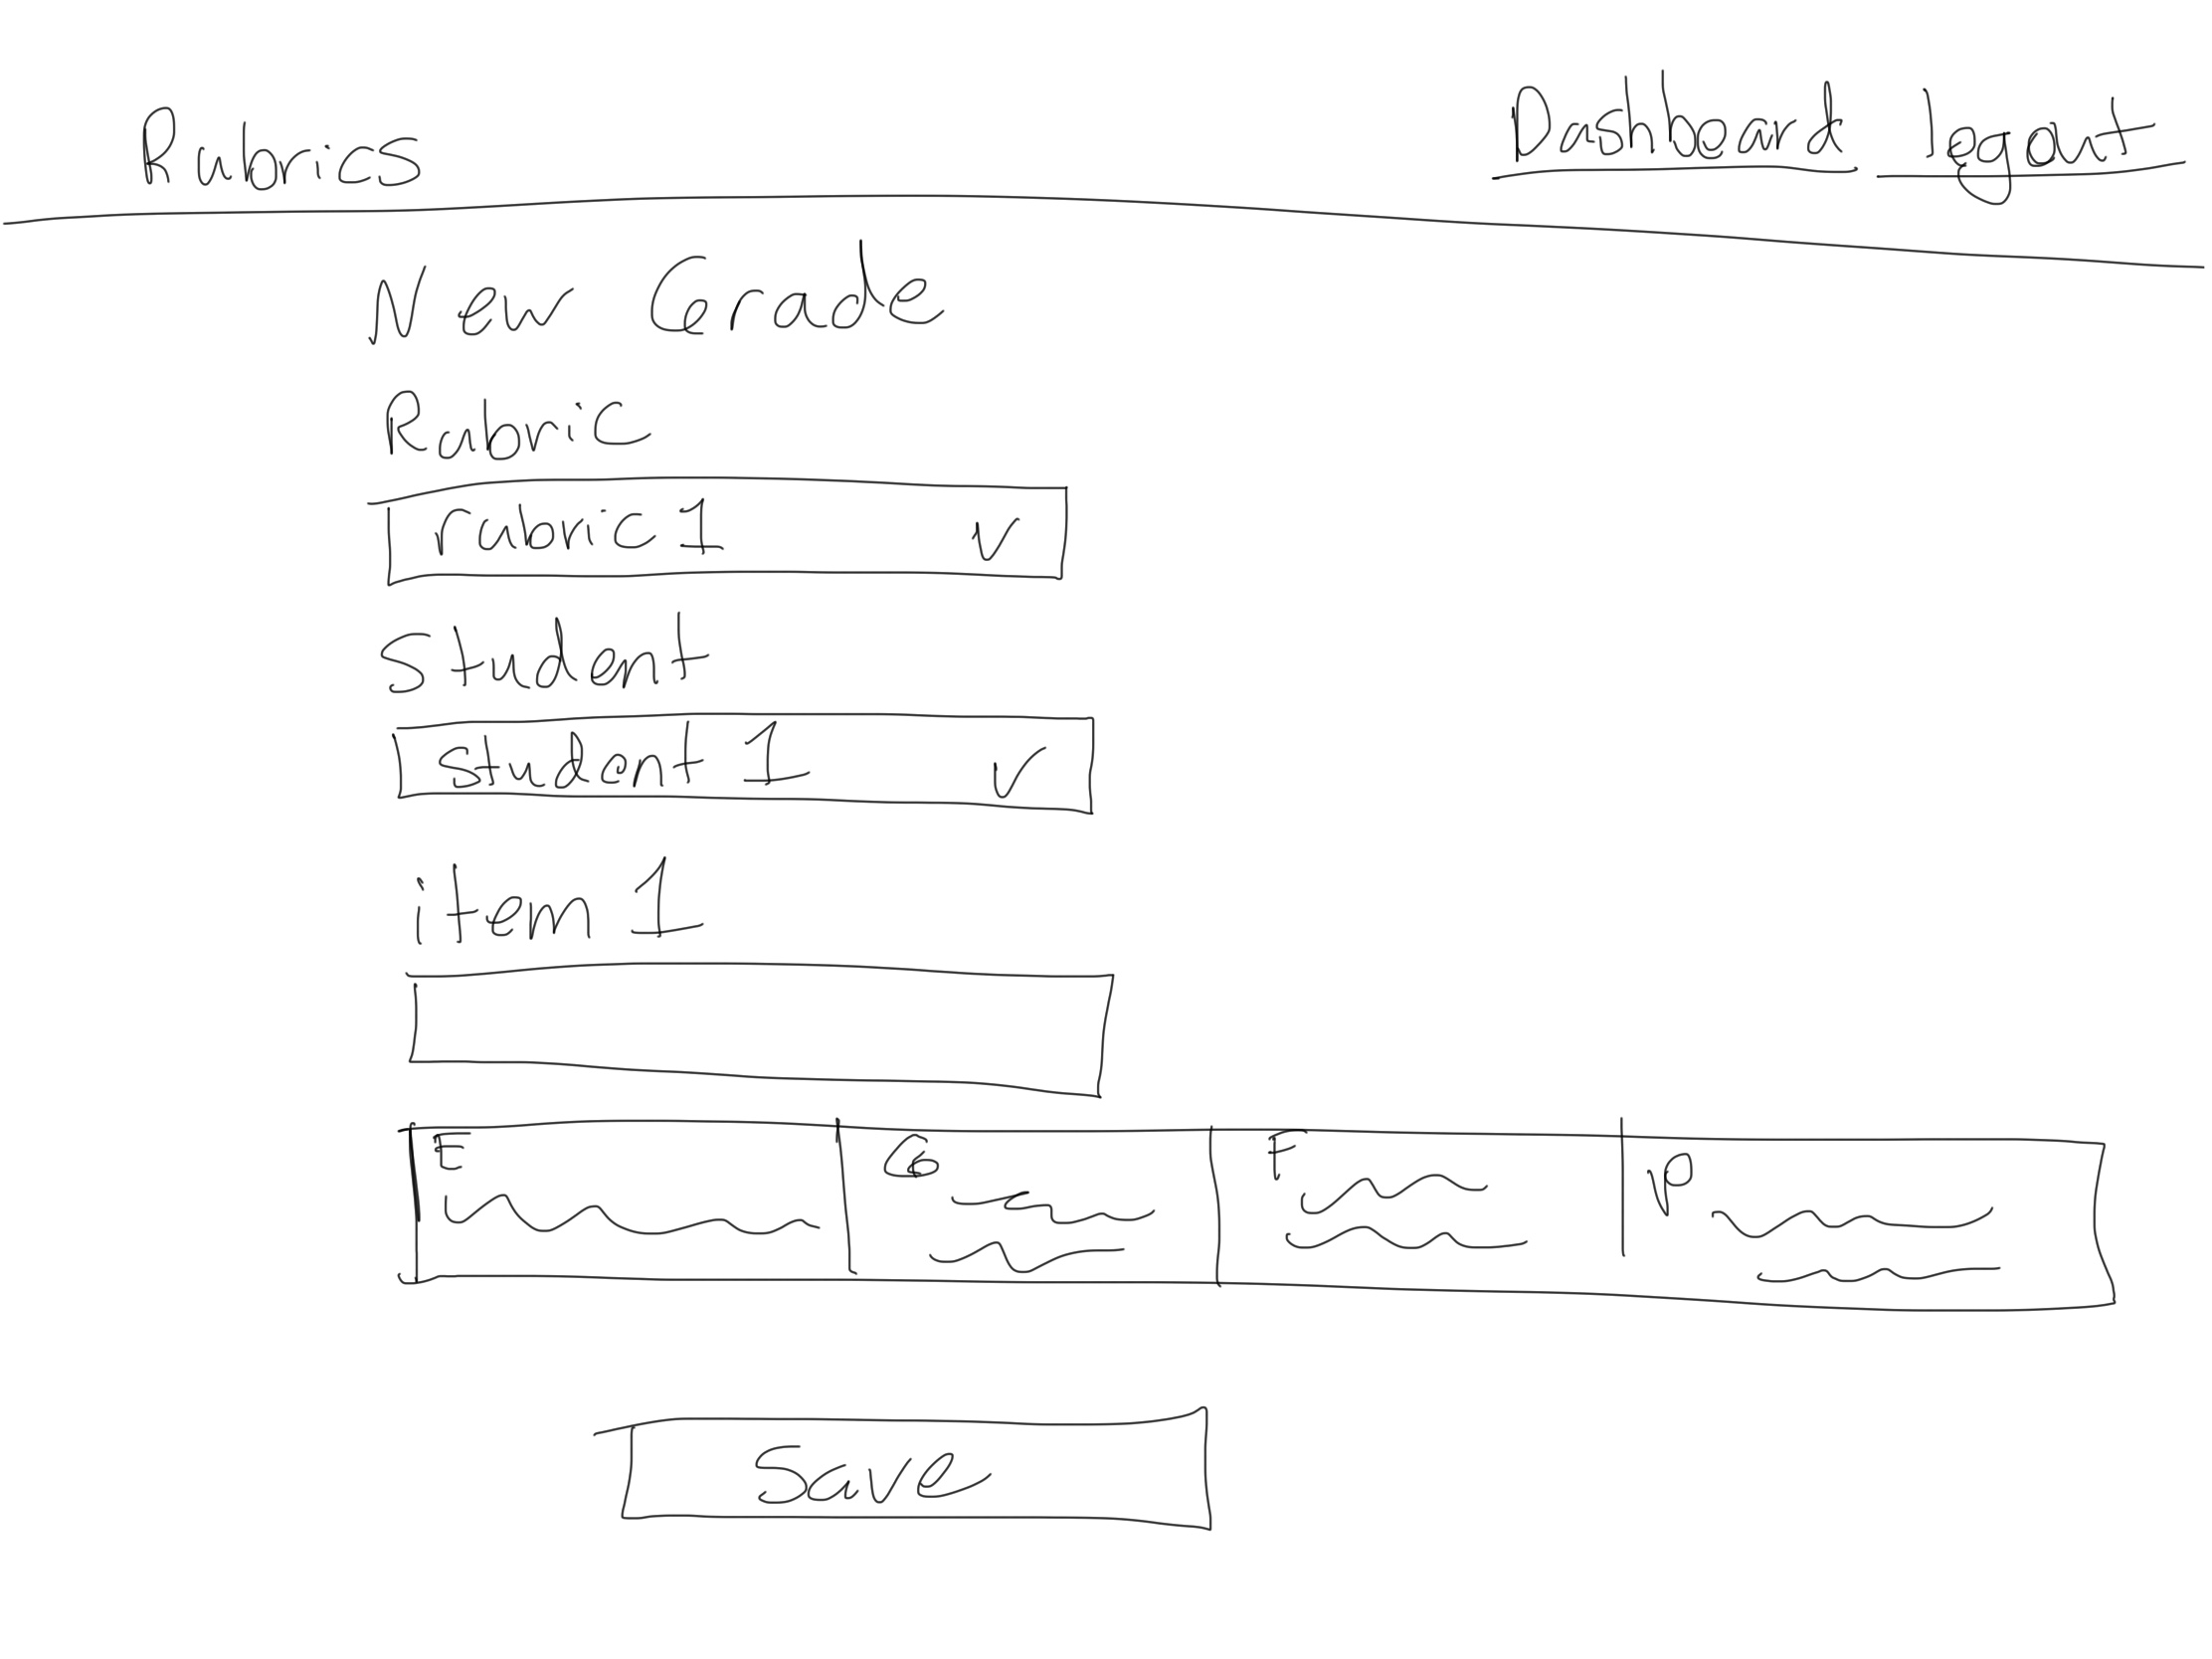 Rubrics Dashboard logout
New Grade
Rubric
rubric 1
Student
student 1
item 1
E G F P
Save